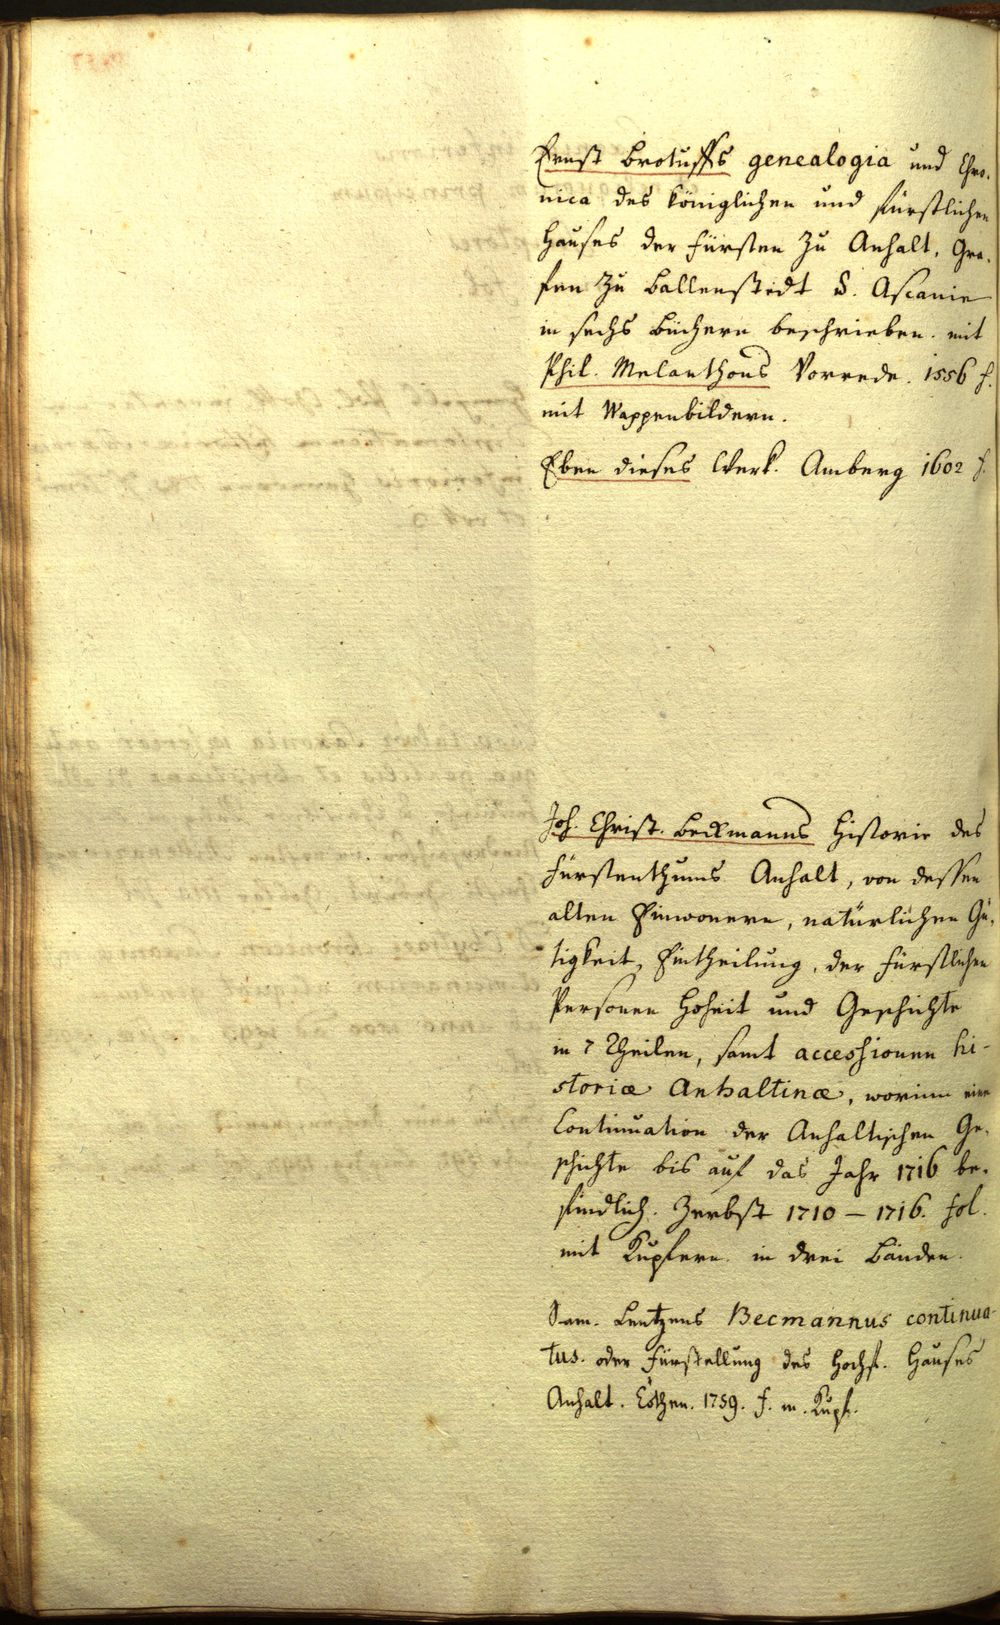 Ernst Brotuffs genealogia und Chro-
nica des königlichen und fürstlichen
Hauses der Fürsten zu Anhalt, Gra-
fen zu Ballenstedt &. Ascanie
in sechs Büchern beschrieben. mit
Phil. Melanthons Vorrede. 1556 f.
mit Wappenbildern.
Eben dieses Werk. Amberg 1602 f.
Joh. Christ. Beckmanns Historie des
Fürstenthums Anhalt, von dessen
alten Einwonern, natürlichen Gü-
tigkeit, Eintheilung, der fürstlichen
Personen Hoheit und Geschichte
in 7 Theilen, samt accessionen hi-
storiæ Anhaltinæ, worinn eine
Continuation der Anhaltischen Ge-
schichte bis auf das Jahr 1716 be-
findlich. Zerbst 1710 – 1716. fol.
mit Kupfern. in drei Bänden.
Sam. Lentzens Becmannus continua-
tus. oder Fürstellung des Hochf. Hauses
Anhalt. Cöthen. 1759. f. m. Kupf.